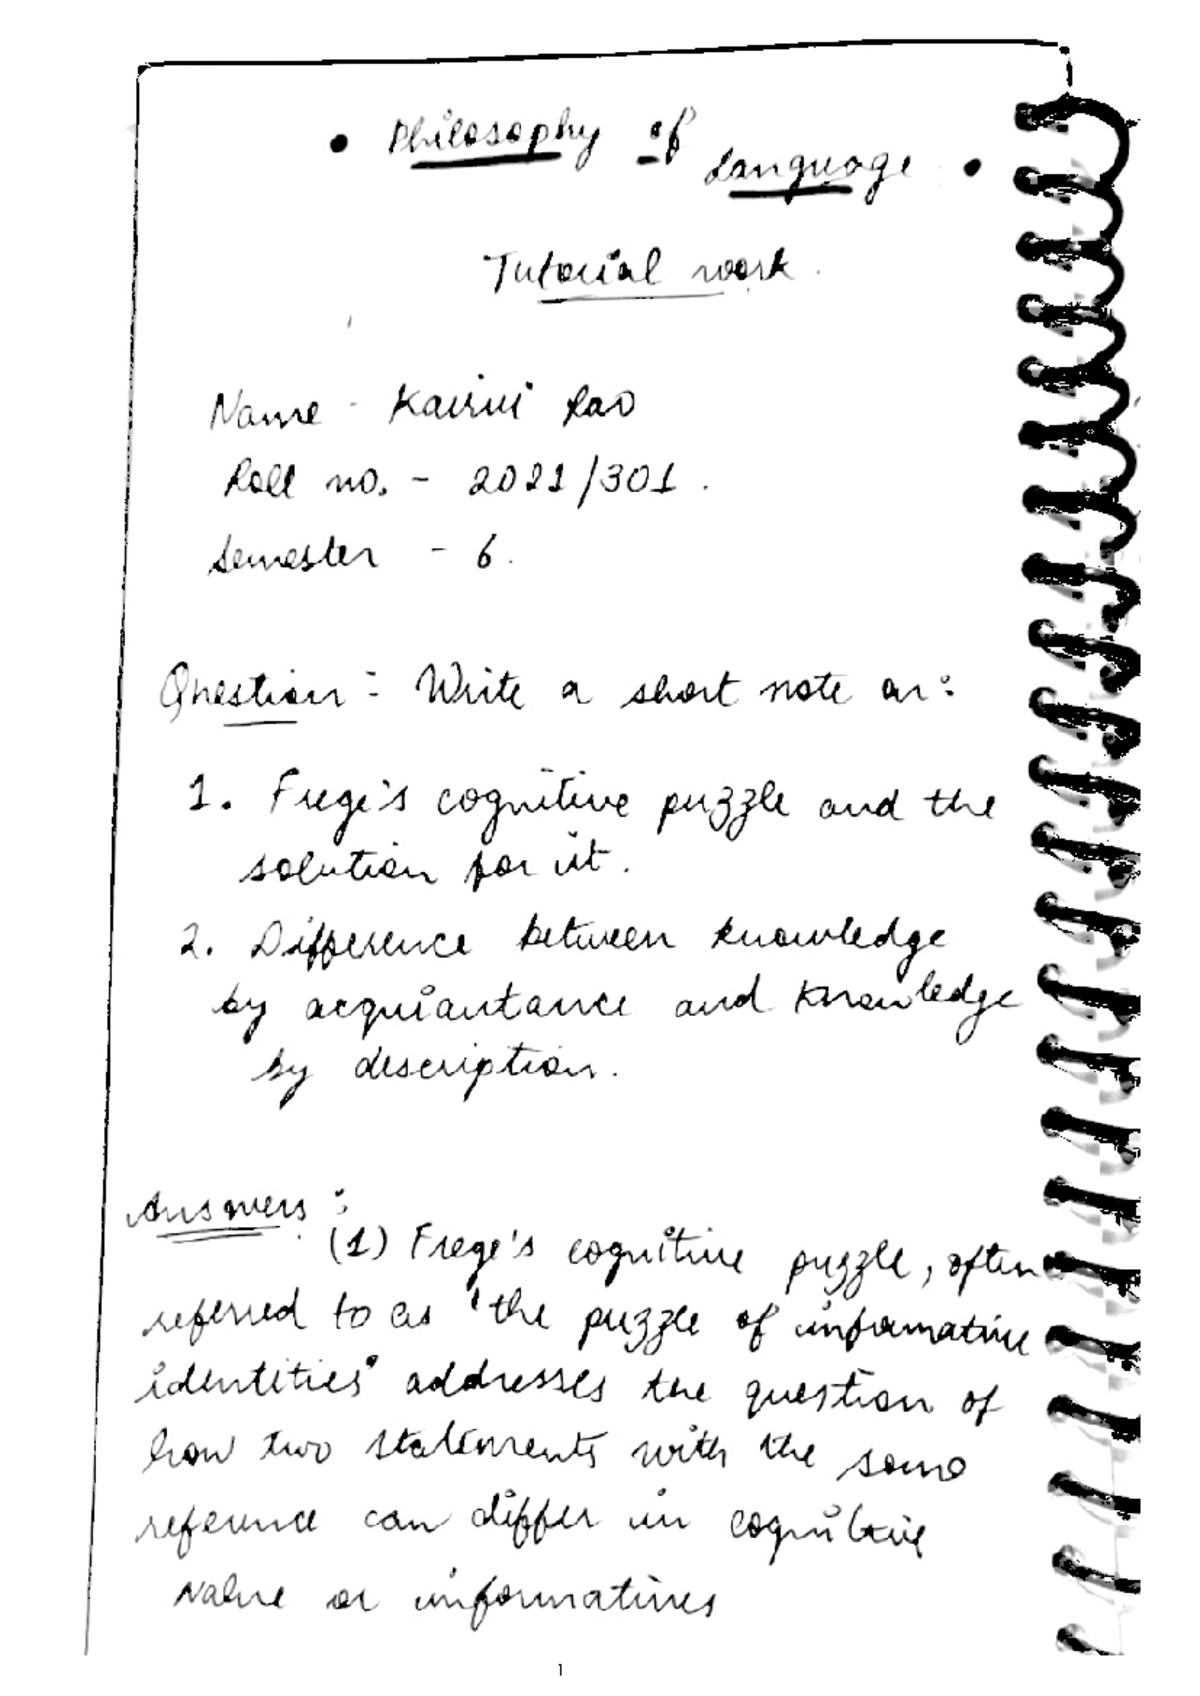 • Philosophy of Language •
Tutorial work.
Name - Kairvi Rao
Roll no. - 2021/301.
Semester - 6.
Question:- Write a short note on:
1. Frege's cognitive puzzle and the
solution for it.
2. Difference between knowledge
by acquiantance and knowledge
by description.
Answers:
(1) Frege's cognitive puzzle, often
referred to as 'the puzzle of informative
identities' addresses the question of
how two statements with the same
reference can differ in cognitive
value or informatives
1